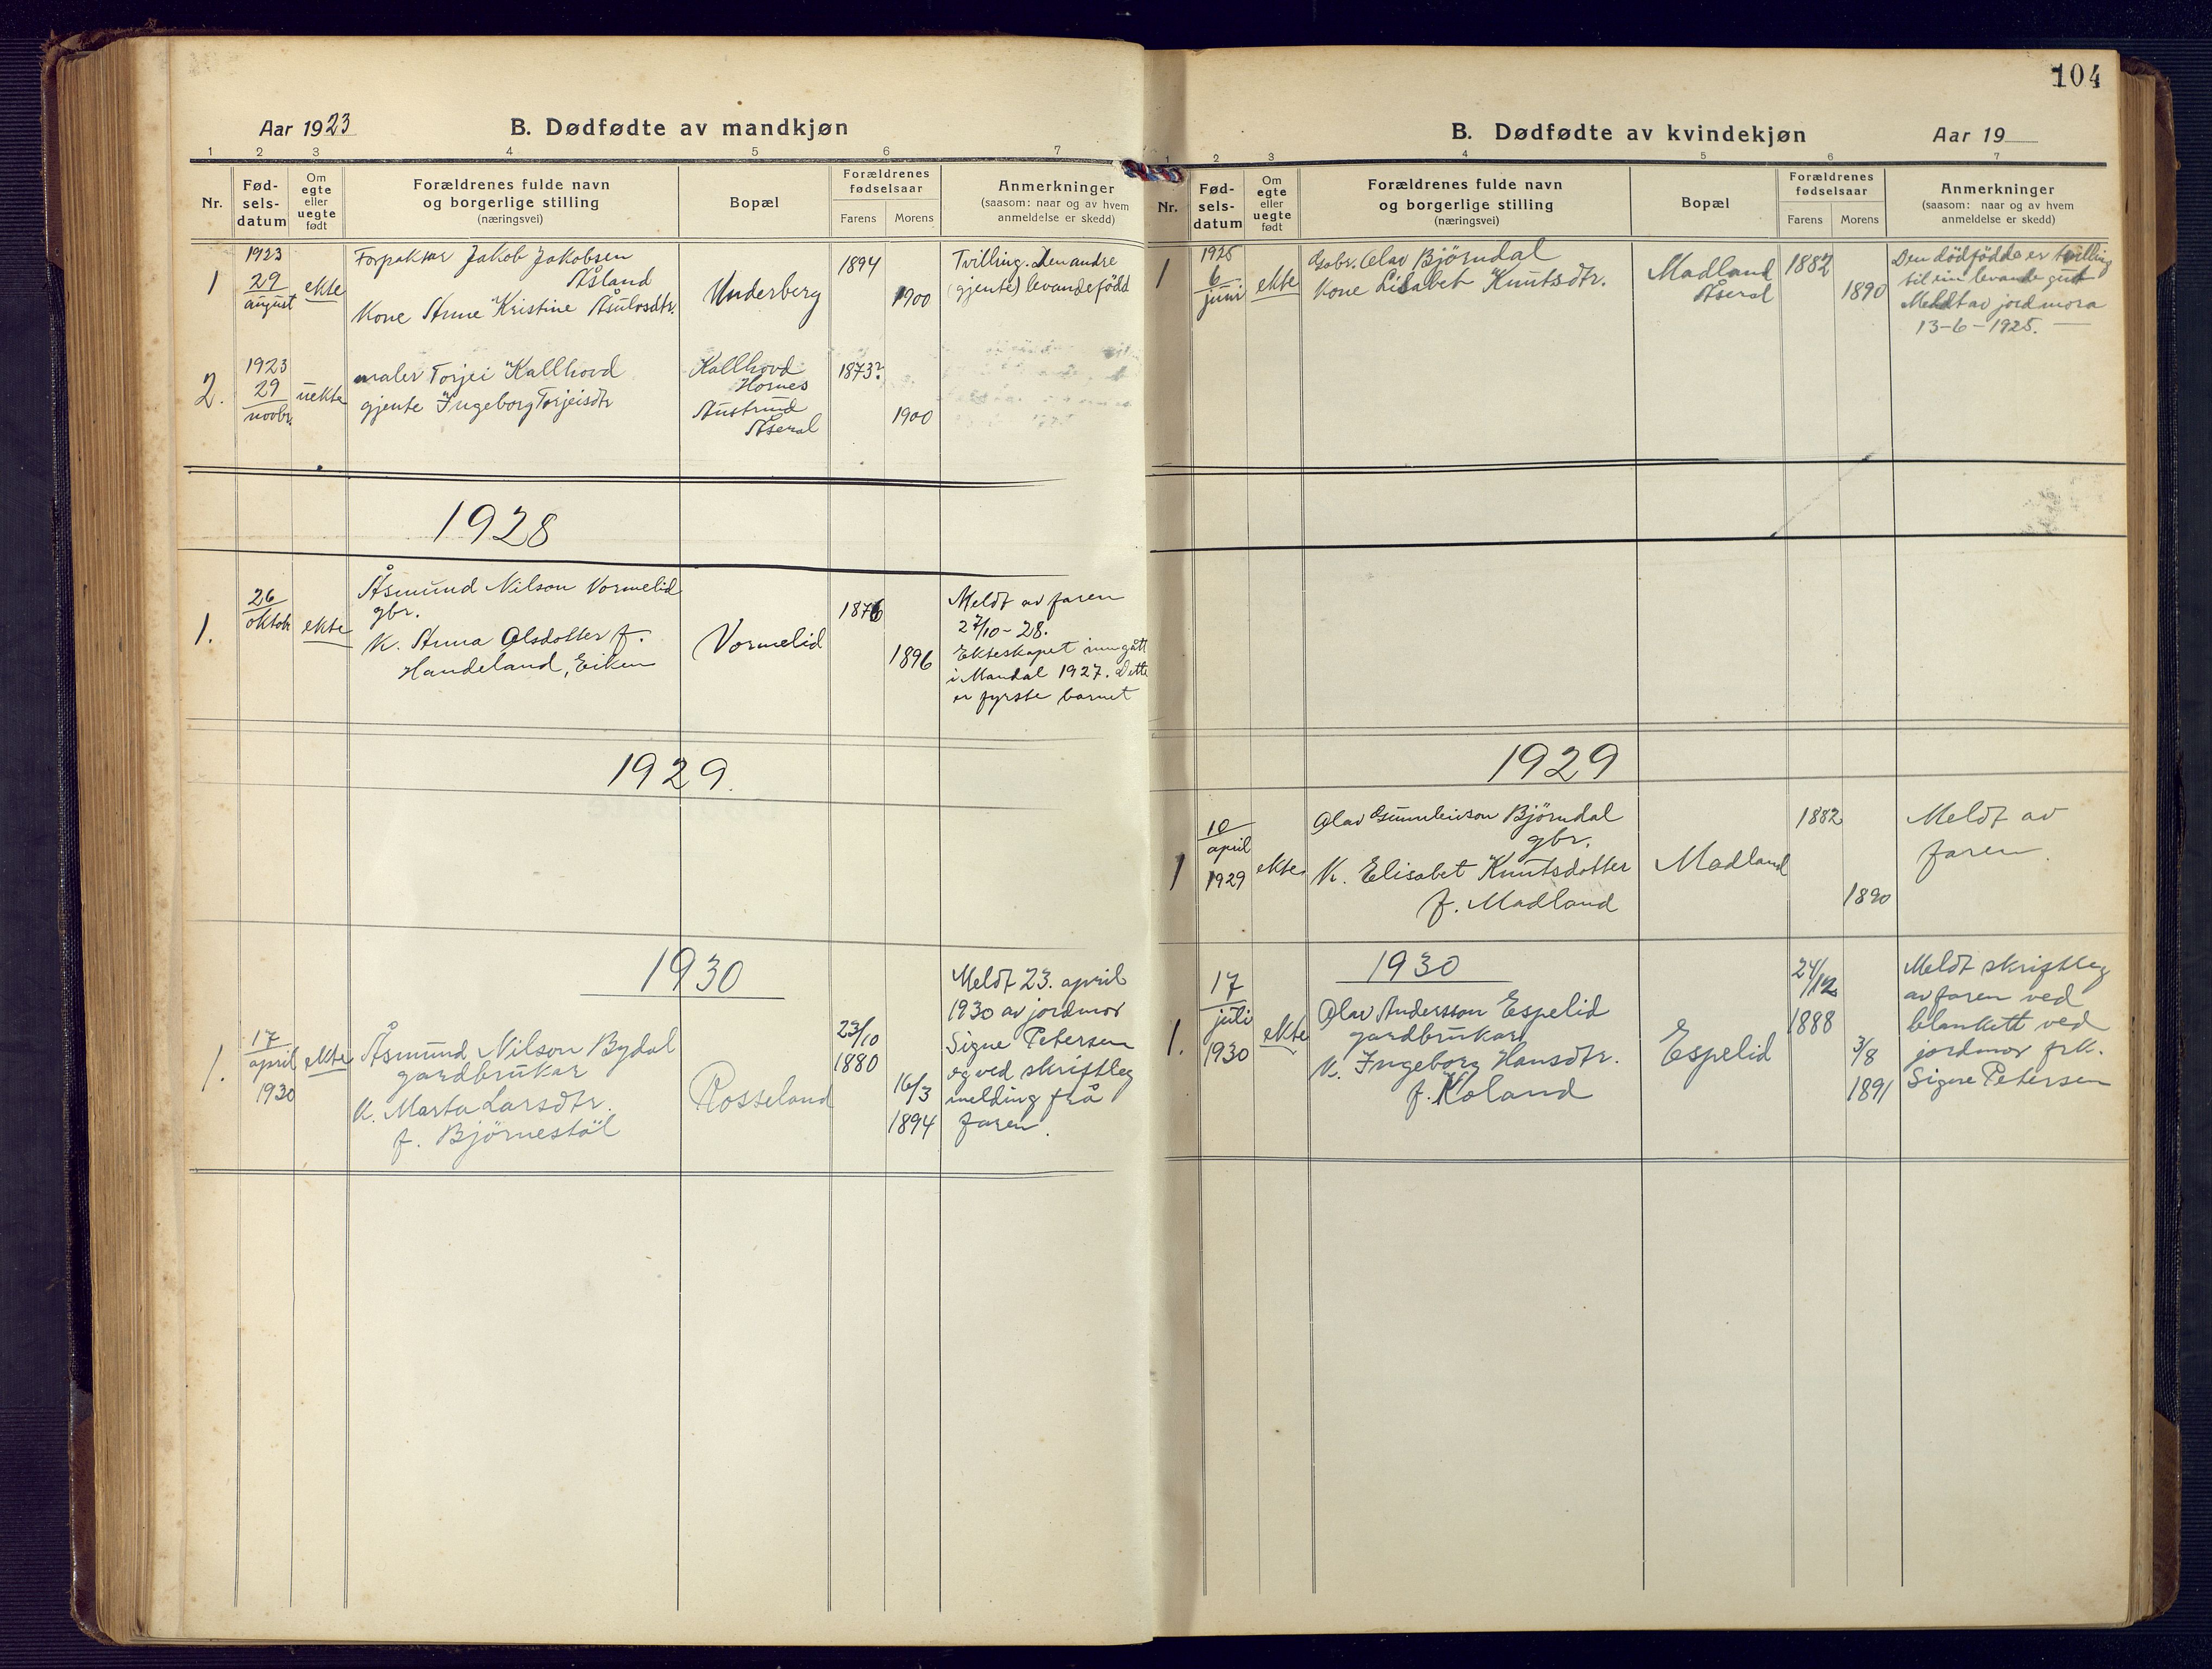 Aar 1923
B. Dødfødte av mandkjøn
1 2 3 4 5 6 7
Nr.
Fød-
sels-
datum
Om
egte
eller
uegte
født
Forældrenes fulde navn
og borgerlige stilling
(næringsvei)
Bopæl
Forældrenes
fødselsaar
Farens Morens
Anmerkninger
(saasom: naar og av hvem
anmeldelse er skedd)
1
1923
29
august
ekte
Forpaktar Jakob Jakobsen
Åsland
Kone Anne Kristine Åsulvsdtr.
Underberg
1894
1900
Tvilling. Den andre
(gjente) levandefödd
2.
1923
29
novbr.
uekte
maler Torjei Kallhovd
gjente Ingeborg Torjeisdtr
Kallhovd
Hornes
Austrud
Åseral
1873?
1900
1928
1.
26
oktob
ekte
Åsmund Nilson Vormelid
gbr.
K. Anna Olsdotter f.
Handeland, Eiken
Vormelid
1876
1896
Meldt av faren
27/10-28.
Ekteskapet inngått
i Mandal 1927. Dette
er fyrste barnet
1929.
1930
1.
17
april
1930
ekte
Åsmund Nilson Bydal
gardbrukar
K. Marta Larsdtr.
f. Björnestöl
Rosseland
23/10
1880
16/3
1894
Meldt 23. april
1930 av jordmor
Signe Petersen
og ved skriftleg
melding frå
faren.
104
B. Dødfødte av kvindekjøn
Aar 19
1 2 3 4 5 6 7
Nr.
Fød-
sels-
datum
Om
egte
eller
uegte
født
Forældrenes fulde navn
og borgerlige stilling
(næringsvei)
Bopæl
Forældrenes
fødselsaar
Farens Morens
Anmerkninger
(saasom: naar og av hvem
anmeldelse er skedd)
1
1925
6
juni
ekte
Gabr. Olav Björndal
Kone Lisabet Knutsdtr.
Madland
Åseral
1882
1890
Den dödfödde er tvilling
til ein levande gut
Meldt av jordmora
13-6-1925.
1929
1
10
april
1929
ekte
Olav Gunnleivson Björndal
gbr.
K. Elisabet Knutsdotter
f. Madland
Madland
1882
1890
Meldt av
faren.
1930
1.
17
juli
1930
ekte
Olav Andersson Espelid
gardbrukar
K. Ingeborg Hansdtr.
f. Koland
Espelid
24/12
1888
3/8
1891
Meldt skriftleg
av faren ved
blankett ved
jordmor frk.
Signe Petersen